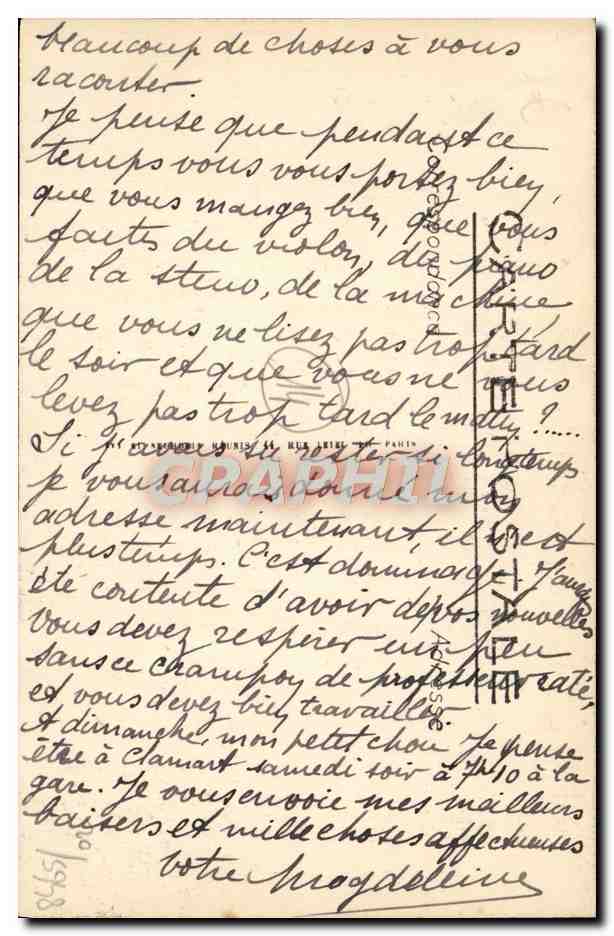 beaucoup de choses à vous
raconter.
Je pense que pendant ce
temps vous vous portez bien,
que vous mangez bien, que vous
faites du violon, du piano
de la steno, de la machine,
que vous ne lisez pas trop tard
le soir et que vous ne vous
levez pas trop tard le matin ?.....
Si j'avais su rester si longtemps
je vous aurais donné mon
adresse maintenant, il n'est
plus temps. C'est dommage. J'aurais
été contente d'avoir de vos nouvelles
vous devez respirer un peu
sans ce crampon de professeur raté,
et vous devez bien travailler.
A dimanche, mon petit chou. Je pense
être à Clamart samedi soir à 7h10 à la
gare. Je vous envoie mes meilleurs
baisers et mille choses affectueuses
Votre Magdeleine
CARTE POSTALE
Correspondance
Adresse
RÉUNIS, 44, RUE PARIS
CPAPHIL